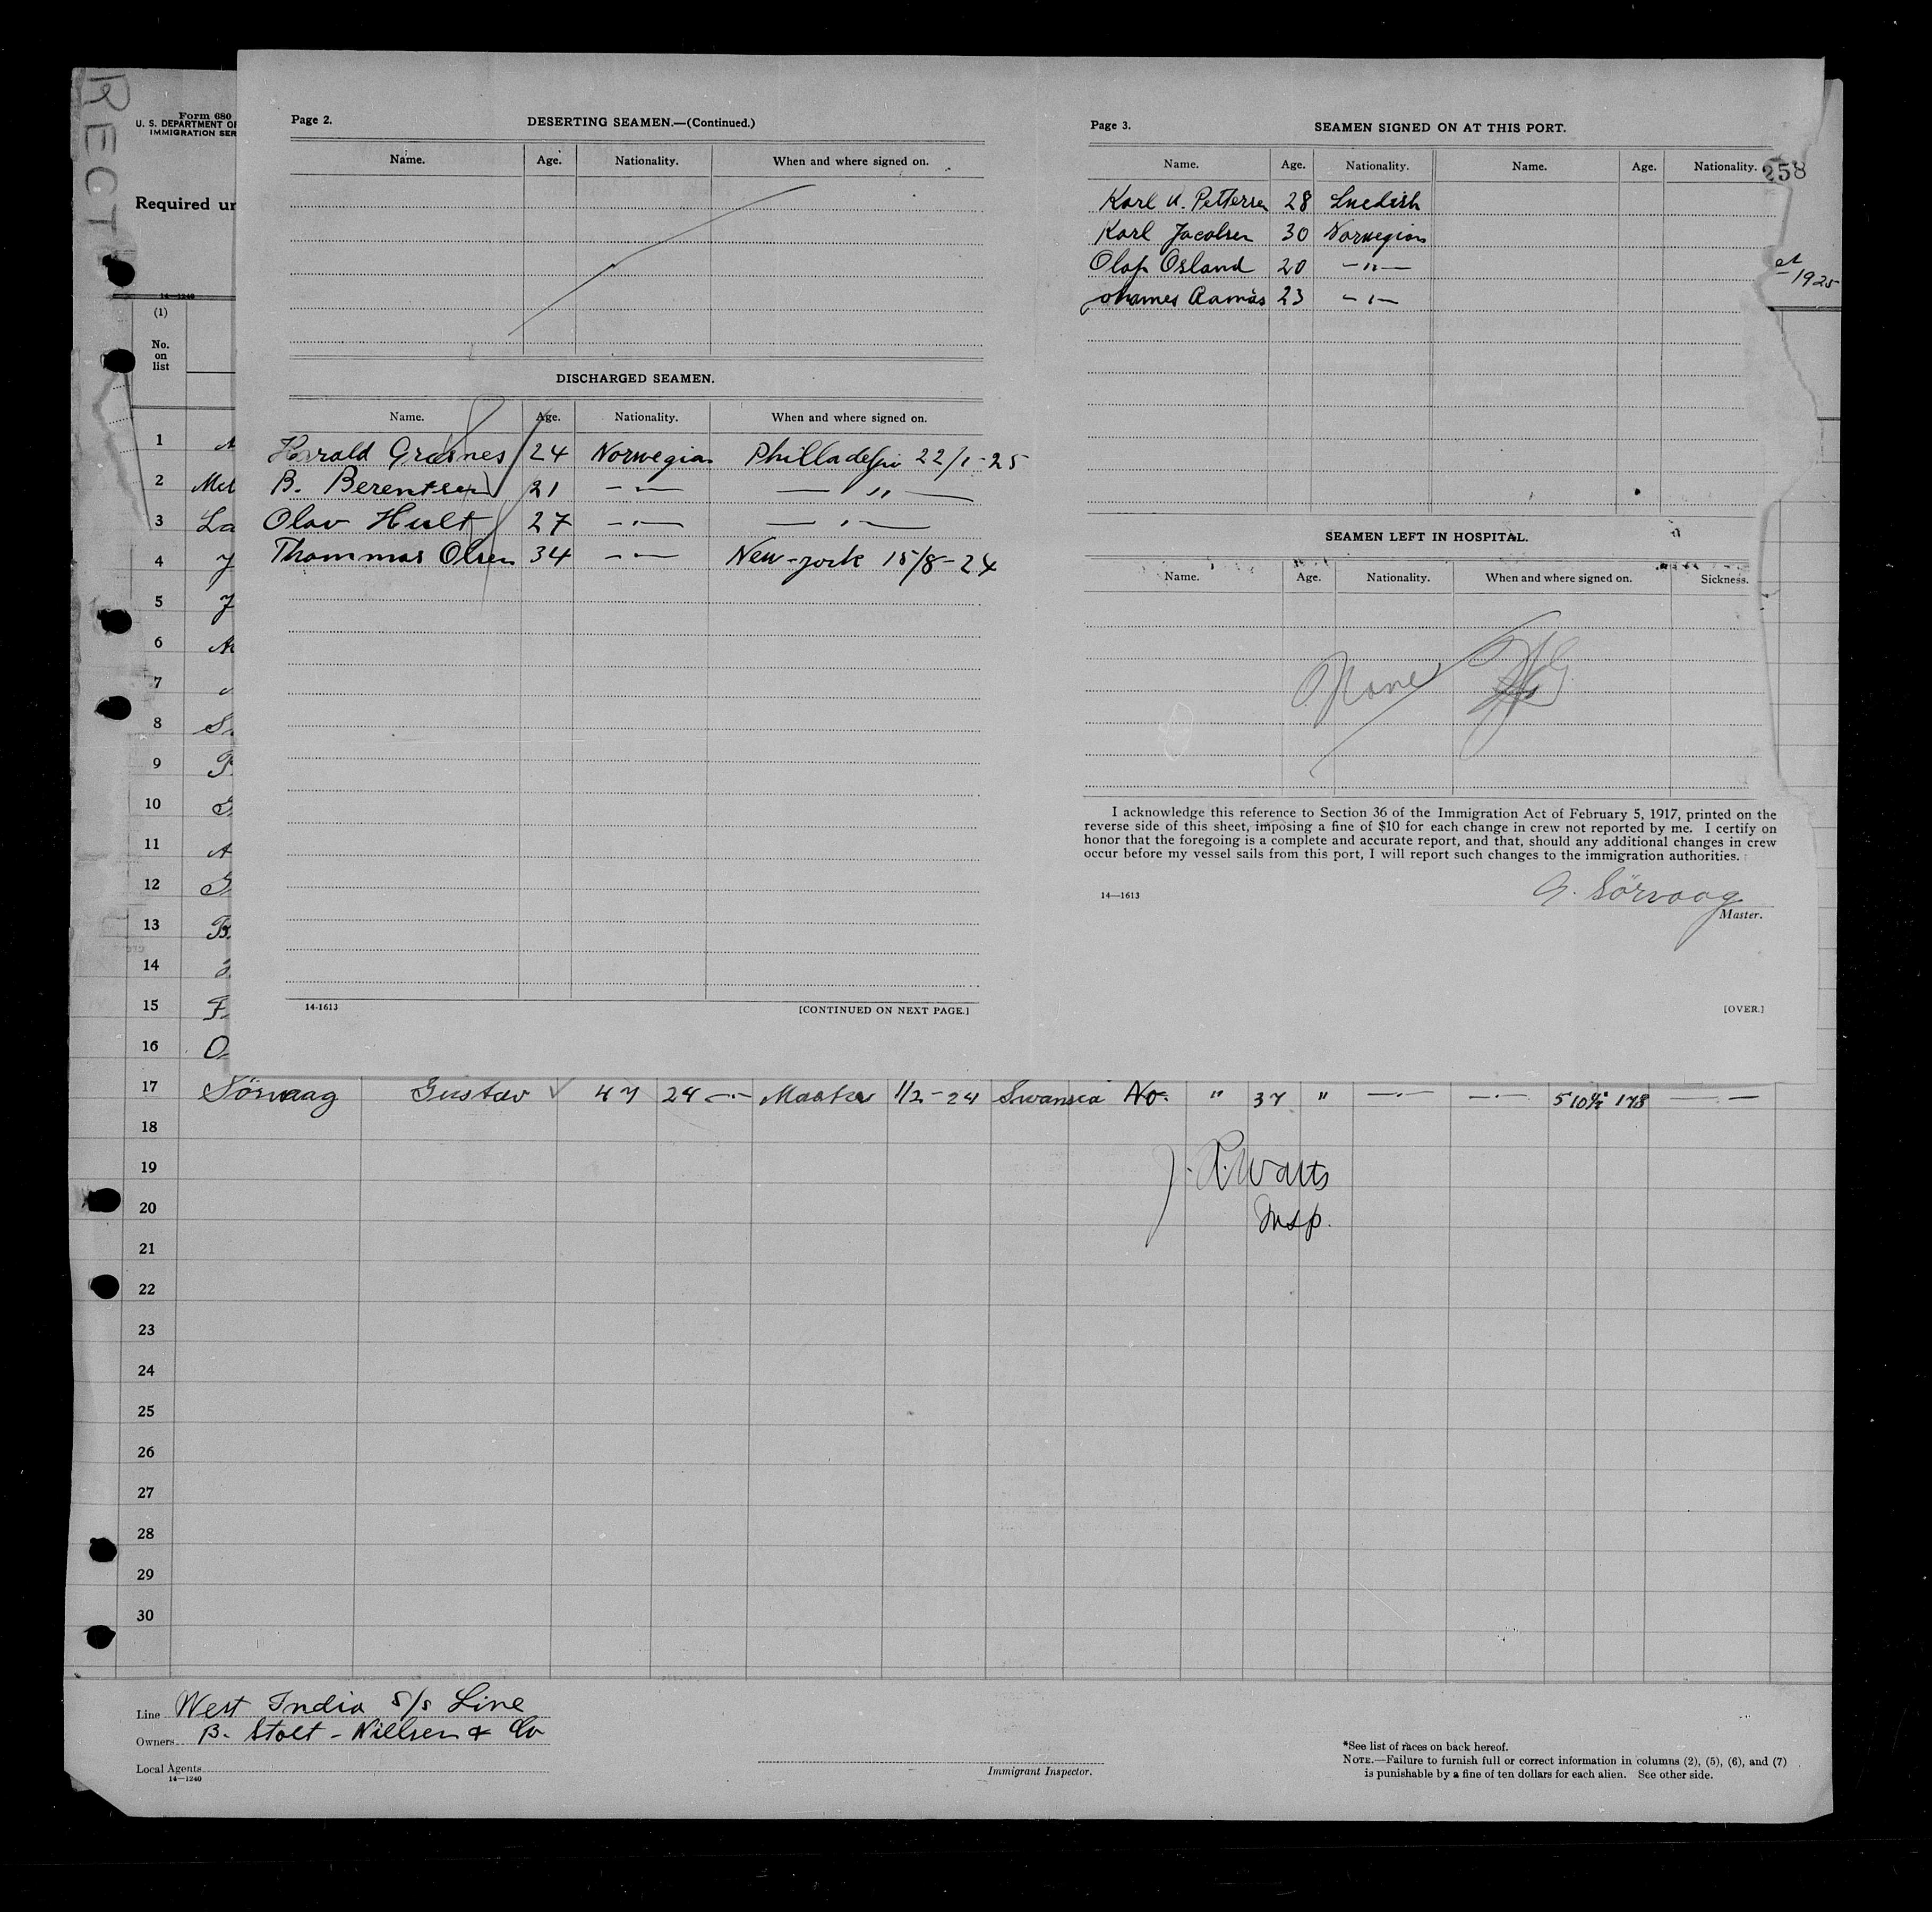 RECT
Form 680
U. S. DEPARTMENT OF
IMMIGRATION SER
Required un
14—1240
(1)
No.
on
list
Page 2.
DESERTING SEAMEN.—(Continued.)
Name. Age. Nationality. When and where signed on.
DISCHARGED SEAMEN.
Name. Age. Nationality. When and where signed on.
Harald Grasnes 24 Norwegian Philladelfi 22/1-25
B. Berentsen 21 —"— —"—
Olav Hult 27 —"— —"—
Thommas Olsen 34 —"— New-york 15/8-24
14-1613
[CONTINUED ON NEXT PAGE.]
Page 3.
SEAMEN SIGNED ON AT THIS PORT.
Name. Age. Nationality. Name. Age. Nationality.
258
Karl A. Pettersen 28 Swedish
Karl Jacobsen 30 Norwegian
Olaf Osland 20 —"—
Johannes Aamås 23 —"—
1925
SEAMEN LEFT IN HOSPITAL.
Name. Age. Nationality. When and where signed on. Sickness.
None
I acknowledge this reference to Section 36 of the Immigration Act of February 5, 1917, printed on the
reverse side of this sheet, imposing a fine of $10 for each change in crew not reported by me. I certify on
honor that the foregoing is a complete and accurate report, and that, should any additional changes in crew
occur before my vessel sails from this port, I will report such changes to the immigration authorities.
14—1613
G. Sörvaag
Master.
[OVER.]
1
2 Mel
3 La
4
5
6
7
8
9
10
11
12
13
14
15
16
17 Sörvaag Gustav 47 24 —"— Master 1/2-24 Swansea No. " 37 " —"— —"— 5'10½" 178 — —
18
19
J. R. Watts
20
Insp.
21
22
23
24
25
26
27
28
29
30
Line West India S/S Line
Owners B. Stolt-Nielsen & Co
Local Agents
14—1240
Immigrant Inspector.
*See list of races on back hereof.
NOTE.—Failure to furnish full or correct information in columns (2), (5), (6), and (7)
is punishable by a fine of ten dollars for each alien. See other side.